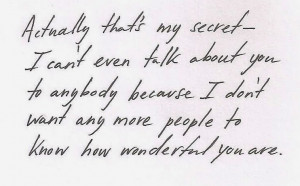 Actually that's my secret—
I can't even talk about you
to anybody because I don't
want any more people to
know how wonderful you are.